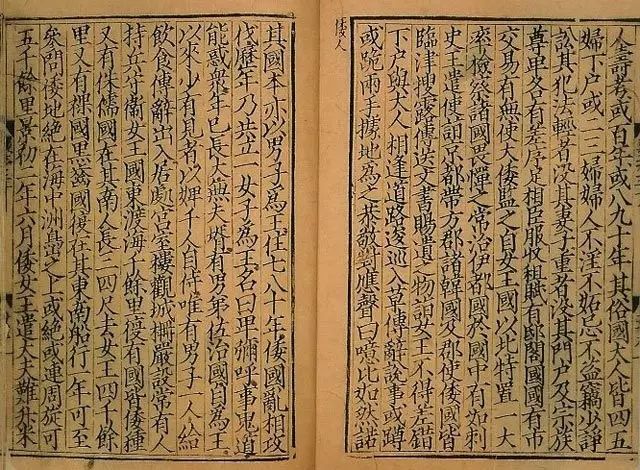 人壽考或百年或八九十年其俗國大人皆四五
婦下戶或二三婦婦人不淫不妬忌不盜竊少諍
訟其犯法輕者沒其妻子重者沒其門戶及宗族
尊卑各有差序足相臣服收租賦有邸閣國國有市
交易有無使大倭監之自女王國以北特置一大
率檢察諸國畏憚之常治伊都國於國中有如刺
史王遣使詣京都帶方郡諸韓國及郡使倭國皆
臨津搜露傳送文書賜遺之物詣女王不得差錯
下戶與大人相逢道路逡巡入草傳辭說事或蹲
或跪兩手據地為之恭敬對應聲曰噫比如然諾
倭人
其國本亦以男子為王住七八十年倭國亂相攻
伐歷年乃共立一女子為王名曰卑彌呼事鬼道
能惑衆年已長大無夫壻有男弟佐治國自為王
以來少有見者以婢千人自侍唯有男子一人給
飲食傳辭出入居處宮室樓觀城柵嚴設常有人
持兵守衛女王國東渡海千餘里復有國皆倭種
又有侏儒國在其南人長三四尺去女王四千餘
里又有裸國黑齒國復在其東南船行一年可至
參問倭地絕在海中洲㠀之上或絕或連周旋可
五千餘里景初 年六月倭女王遣大夫難升米